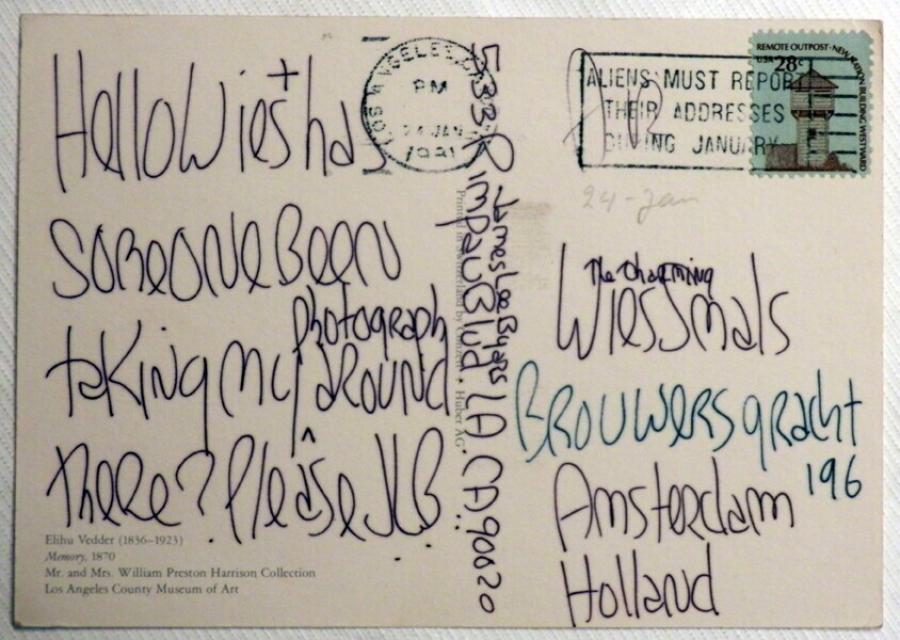 Hello Wies + has
someone been
photograph
taking my around
there? Please JLB
Elihu Vedder (1836–1923)
Memory, 1870
Mr. and Mrs. William Preston Harrison Collection
Los Angeles County Museum of Art
LOS ANGELES, CA
PM
24 JAN
1981
James Lee Byars
533 S Rimpau Blvd. LA CA. 90020
Printed in Switzerland by • Huber AG
ALIENS MUST REPORT
THEIR ADDRESSES
DURING JANUARY
REMOTE OUTPOST · NEW NATION BUILDING WESTWARD
USA 28c
24-Jan
The charming
Wies Smals
Brouwersgracht
196
Amsterdam
Holland